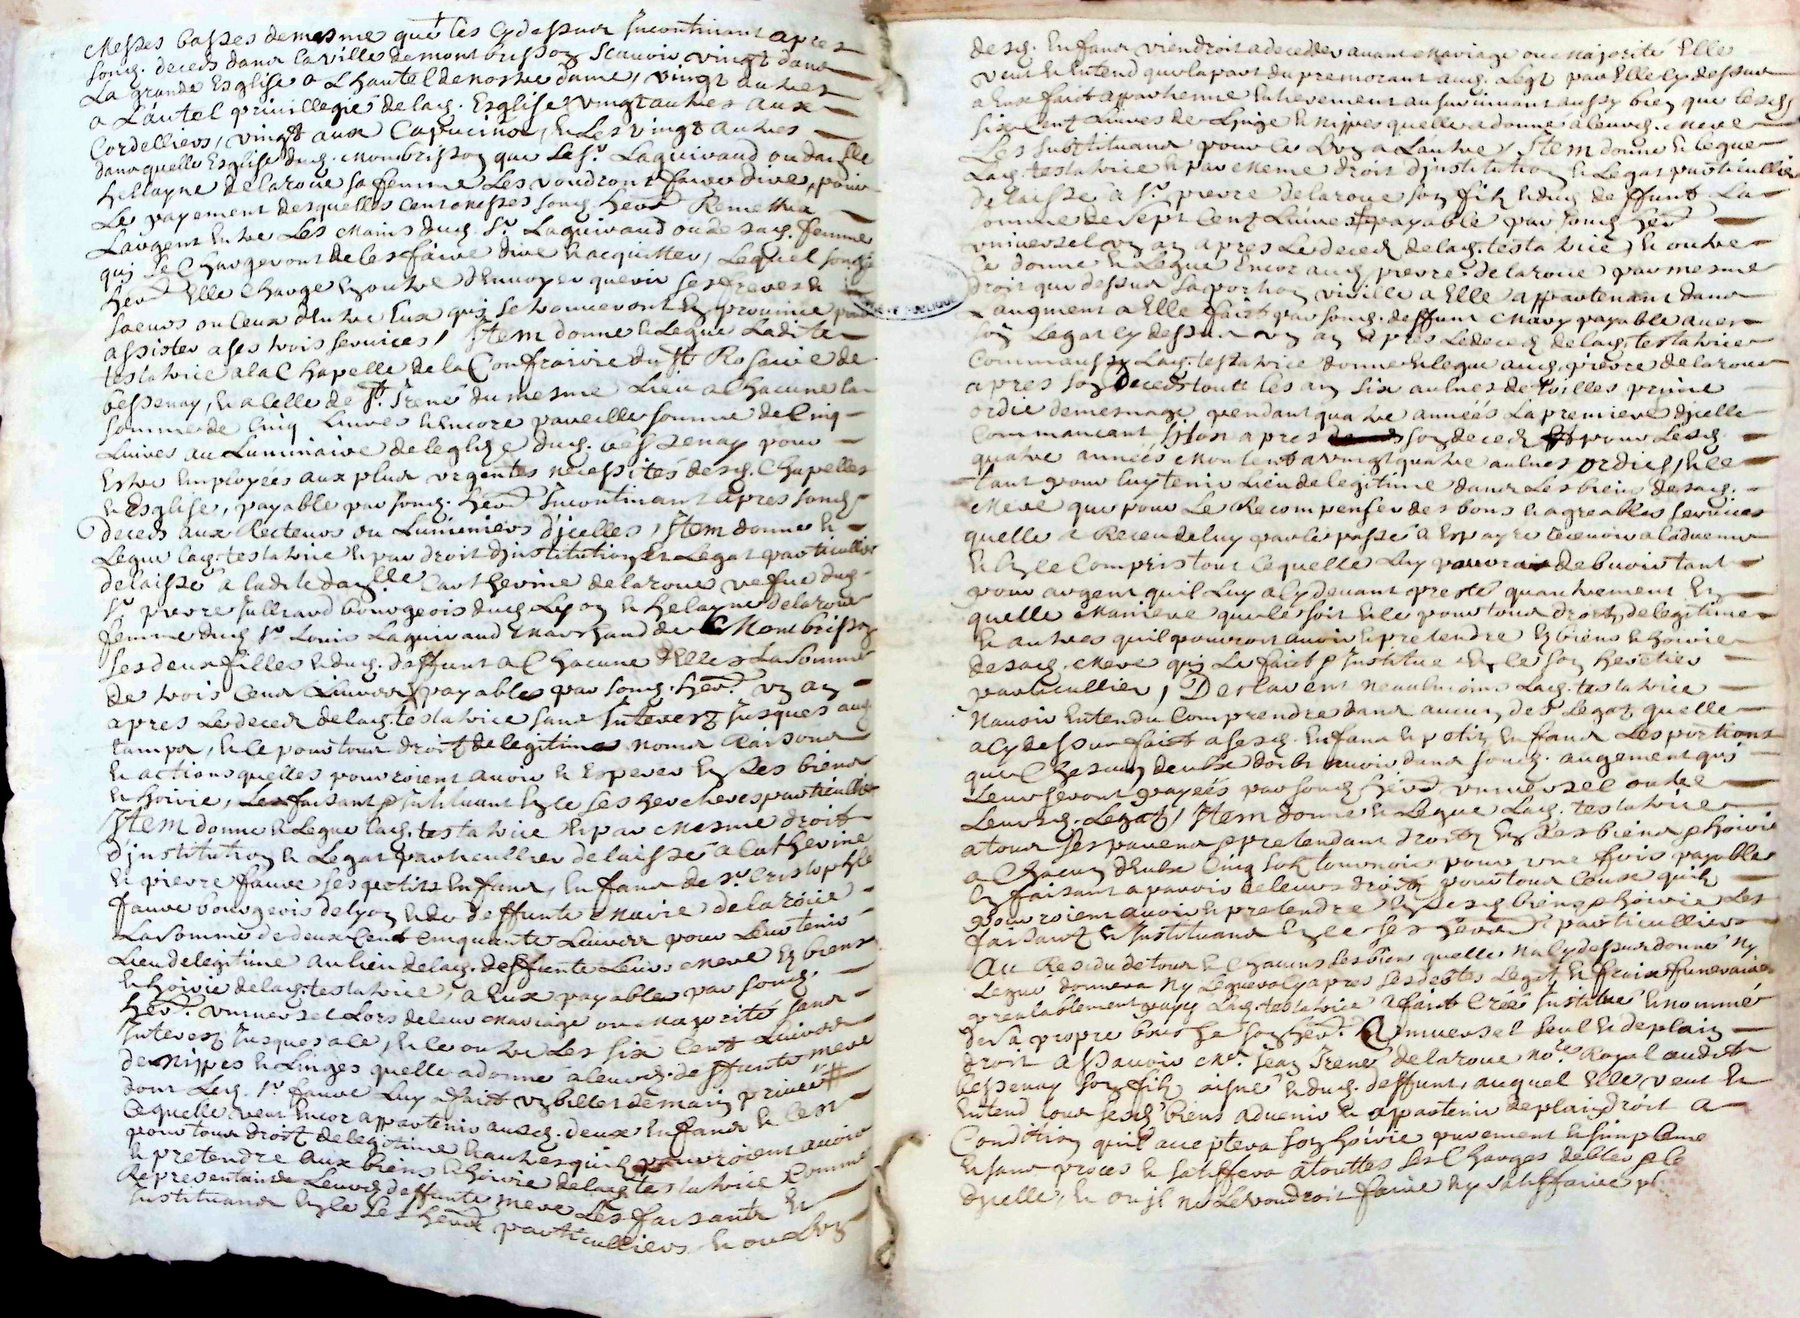 Messes basses de mesme que les cy dessus Incontinant apres
son d. deceds dans la ville de montbrisson scavoir vingt dans
La grande Esglise a L'hautel de nostre dame, vingt autres
a L'autel privillegié de lad. Esglise vingt autres aux
Cordelliers, vingt aux Capucins, & Les vingt autres
dans quelle Esglise dud. Montbrisson que le Sr. Laguiraud ou dalle
hellayne de laroüe sa femme Les voudront faire dire, pour
Le payement desquelles cent messes sond. herer. Remettra
L'argent entre Les mains dud. Sr. Laguiraud ou de sad. femme
qui se Chargeront de les faire dire & acquitter, Lequel sond.
herer. Elle charge En outre d'Envoyer querir ses freres &
soeurs ou ceux d'Entre Eux qui se trouveront En province pour
assister a ses trois services, Item donne & Legue Ladite
testatrice a la Chapelle de la Confrairie du St. Rosaire de
bessenay, & a celle de St. Irené du mesme Lieu a Chacune la
somme de cinq Livres & Encore pareille somme de cinq
Livres au Luminaire de leglize dud. bessenay pour
Estre Employées aux plus urgentes necessites desd. Chapelles
& Esglise, payable par sond. herer. Incontinant apres sond.
deceds aux Recteurs ou Luminiers d'jcelles, Item donne &
Legue lad. testatrice & par droit d'jnstitution & Legat particullier
delaisse a ladite dalle Catherine de laroüe vefue du d.
Sr. pierre Julliard bourgeois dud. Lyon & helayne de laroüe
femme dud. Sr. Louis Laguiraud Marchand de Montbrisson
ses deux filles & dud. deffunt a Chacune d'Elles La somme
de trois cens Livres payables par sond. herer. un an
apres Le deced de lad. testatrice sans Interest Jusques aud.
tamps, & ce pour tous droits de legitime noms Raisons
& actions quelles pourroient avoir & Esperer En ses biens
& hoirie, Les faisant & Instituant En ce ses heritieres particullieres
Item donne & Legue lad. testatrice & par mesme droit
d'jnstitution & Legat particullier delaisse a Catherine
& pierre faure ses petits Enfans, Enfans de Sr. Cristophle
faure bourgeois de lyon & de deffunte Marie de laroüe
La somme de deux cent cinquante Livres pour Leur tenir
Lieu de legitime au lieu de lad. deffunte Leur mere En biens
& hoirie de lad. testatrice, a Eux payable par sond.
herer. universel Lors de leur mariage ou majorité sans
Interest Jusques a ce, & ce outre Les six Cent Livres
de Nippes & Linges quelle a donné a leurd. deffunte mere
dont Led. Sr. faure Luy a faict un billet de main privée #
Ce quelle veut Encor appartenir ausd. deux Enfans & C'est
pour tous droits de legitime & autres quils pourroient avoir
& pretendre aux biens & hoirie de lad. testatrice Comme
Representans Leurd. deffunte mere Les faisants &
Instituans En ce ses herers. particulliers & ou L'un
desd. Enfans viendroit a deceder avant Mariage ou Majorité Elle
veut & Entend que la part du premorant aud. Legt par Elle Cy dessus
a Eux fait appartienne Entierement au survivant aussy bien que lesd.
six Cent Livres de Linge & Nippes quelle a donné a leurd. mere
Les substituant pour ce L'un a Lautre, Item donne & legue
Lad. testatrice & par meme droit d'jnstitution & Legat particullier
delaisse a Sr. pierre de laroüe son fils & dud. deffunt La
somme de sept Cent Livres payable par sond. herer.
universel un an apres Le deced de lad. testatrice, & outre
Ce donne & Legue Encor aud. pierre de laroüe par mesme
droit que dessus la portion virille a Elle appartenant dans
L'augment a Elle faict par sond. deffunt Mary payable avec
son Legat cy dessus un an apres Le deced de lad. testatrice
Comm'aussy Lad. testatrice donne & legue aud. pierre de laroüe
apres son deceds touts les ans six aulnes de toilles prime
ordie de mesnage pendant quatre années La premiere d'jcelle
Commancant sitost apres son deced & pour Lesd.
quatre années Montent a vingt quatre aulnes ordies, & ce
tant pour luy tenir Lieu de legitime dans Les biens de sad.
Mere que pour Le Recompenser des bons & agreables services
quelle a Receu de luy par le passé & Espere Recevoir a ladvenir
& En ce Compris tout ce quelle Luy pourroit debvoir tant
pour argent quil Luy a cy devant presté quautrement En
quelle maniere que ce soit & ce pour tous droits de legitime
& autres quil pourroit avoir & pretendre En biens & hoirie
de sad. Mere qui Le faict & Institue En ce son heretier
particullier, Declarent neaulmoins Lad. testatrice
Navoir Entendu Comprendre dans aucun des Legaz quelle
a Cy dessus faict a sesd. Enfans & petits Enfans Les portions
que Chescun deulx doibt avoir dans sond. augement qui
Leur seront payées par sond. herer. universel outre
Leursd. Legaz, Item donne & Legue Lad. testatrice
a tous ses parens pretendant droits En ses biens & hoirie
a Chacun deulx Cinq sols tournois pour une fois payables
En faisant aparoir de leurs droits pour tous Ceux quils
pourroient avoir & pretendre En sesd. biens & hoirie Les
faisants & Instituans En ce ses herers. particulliers
Au Residu de tous & Chacuns ses biens quelle Na Cy dessus donné Ny
Legué donnera Ny Leguera Cy apres ses debtes Legaz & fraix funeraires
prealablement payés Lad. testatrice a faict Créé Institué & nommé
de sa propre bouche son herer. universel seul & de plain
droit assavoir Me. Jean Irené de laroüe Nore. Royal audit
bessenay son fils aisné & dud. deffunt, auquel Elle veut &
Entend tous sesd. biens advenir & appartenir de plain droit a
Condition quil acceptera son hoirie purement & simplement
& sans proces & satisfera a touttes ses Charges debtes & le
d'jcelle, & ou jl ne Le voudroit faire Ny satisfaire